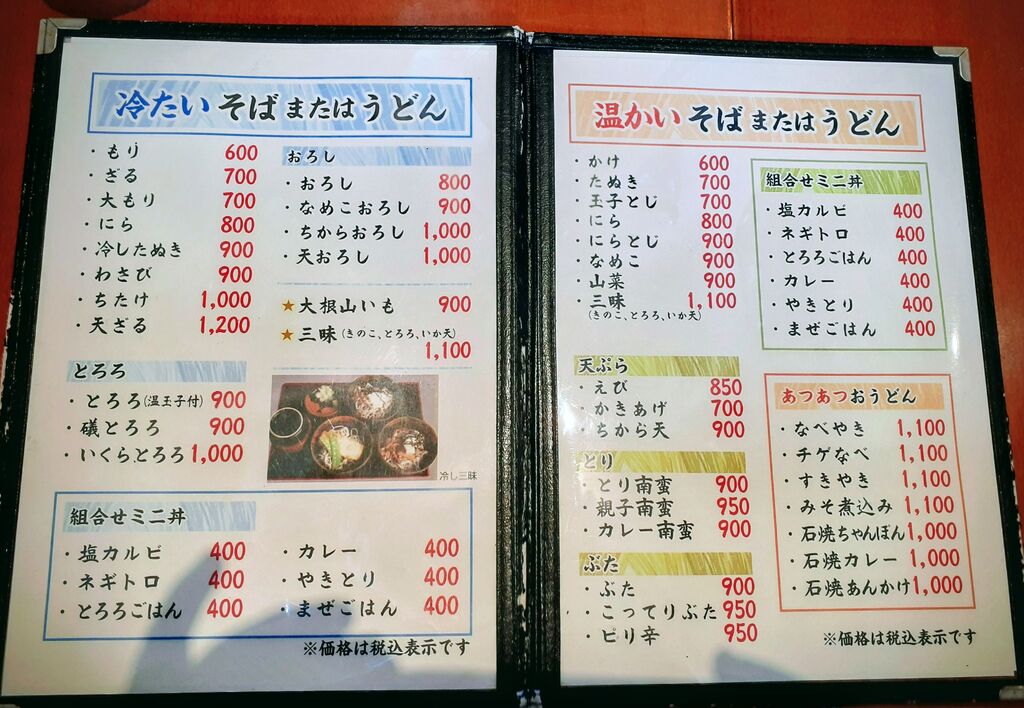 冷たい そば または うどん
・もり 600
・ざる 700
・大もり 700
・にら 800
・冷したぬき 900
・わさび 900
・ちたけ 1,000
・天ざる 1,200
とろろ
・とろろ(温玉子付) 900
・磯とろろ 900
・いくらとろろ 1,000
おろし
・おろし 800
・なめこおろし 900
・ちからおろし 1,000
・天おろし 1,000
★大根山いも 900
★三昧(きのこ、とろろ、いか天)
1,100
冷し三昧
組合せミニ丼
・塩カルビ 400
・ネギトロ 400
・とろろごはん 400
・カレー 400
・やきとり 400
・まぜごはん 400
※価格は税込表示です
温かい そば または うどん
・かけ 600
・たぬき 700
・玉子とじ 700
・にら 800
・にらとじ 900
・なめこ 900
・山菜 900
・三昧 1,100
(きのこ、とろろ、いか天)
天ぷら
・えび 850
・かきあげ 700
・ちから天 900
とり
・とり南蛮 900
・親子南蛮 950
・カレー南蛮 900
ぶた
・ぶた 900
・こってりぶた 950
・ピリ辛 950
組合せミニ丼
・塩カルビ 400
・ネギトロ 400
・とろろごはん 400
・カレー 400
・やきとり 400
・まぜごはん 400
あつあつおうどん
・なべやき 1,100
・チゲなべ 1,100
・すきやき 1,100
・みそ煮込み 1,100
・石焼ちゃんぽん 1,000
・石焼カレー 1,000
・石焼あんかけ 1,000
※価格は税込表示です